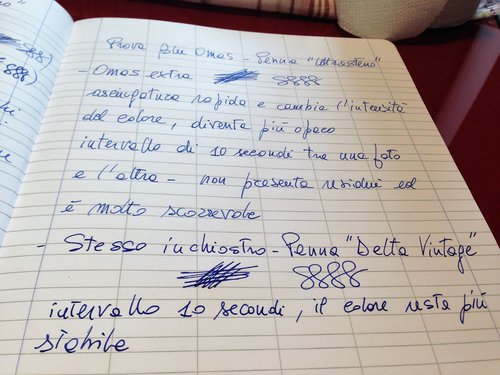 888)
888)
Prova filu Omas - Penna "Ultrasteno"
- Omas extra 8888
asciugatura rapida e cambia l'intensità
del colore, diventa più opaco
intervallo di 10 secondi tra una foto
e l'altra - non presenta residui ed
è molto scorrevole
- Stesso inchiostro - Penna "Delta Vintage"
8888
intervallo 10 secondi, il colore resta più
stabile